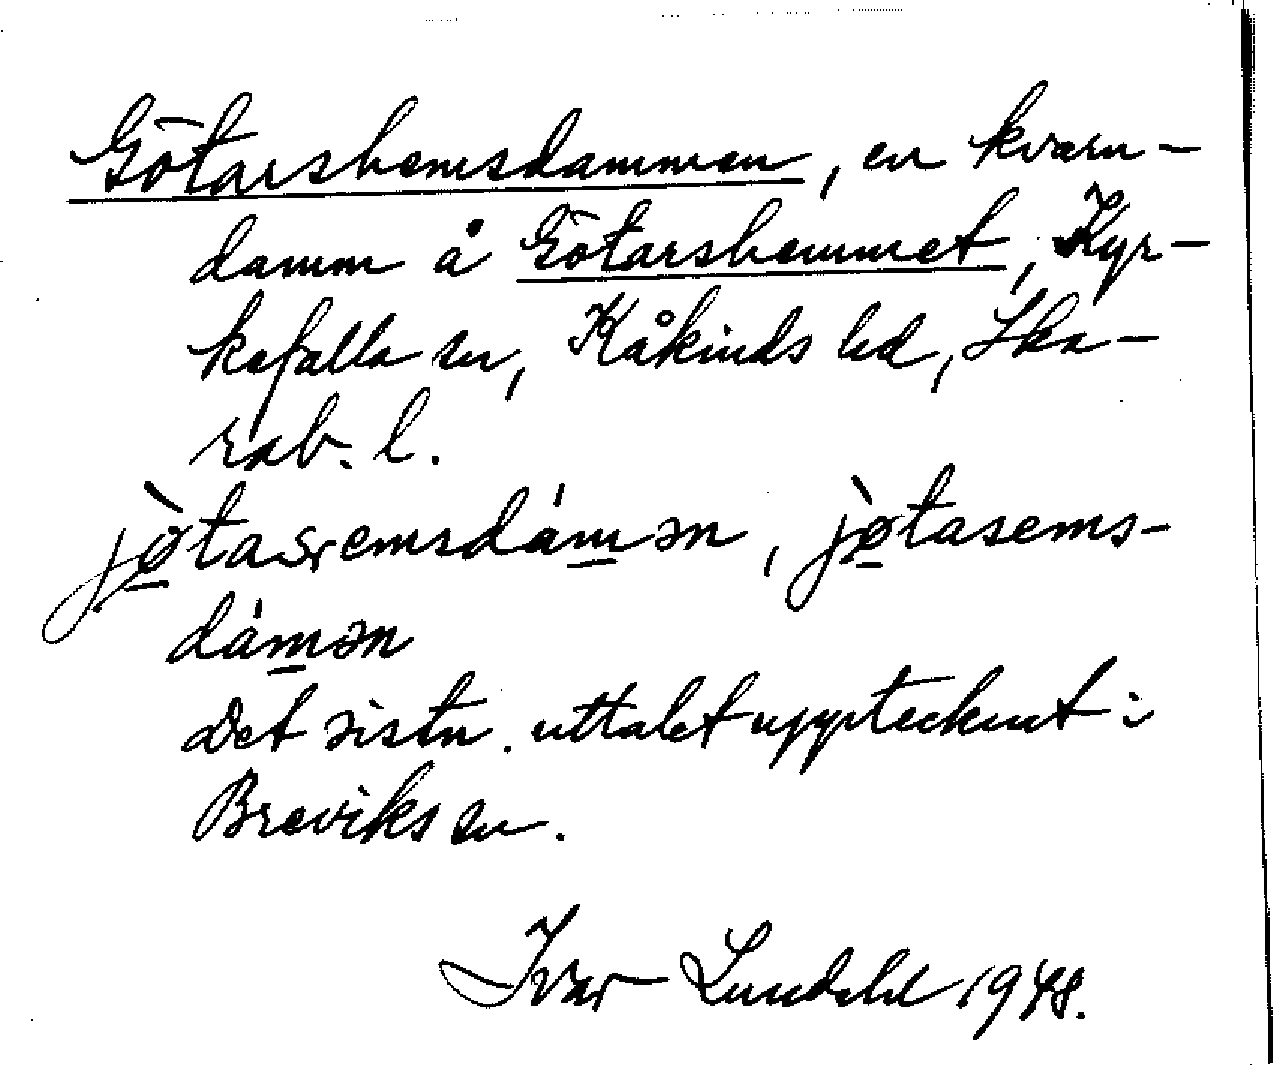 Götarshemsdammen, en kvarn-
damm å Götarshemmet, Kyr-
kefalla sn, Kåkinds hd, Ska-
rab. l.
jø̀tasremsdámən, jø̀tasems-
dámən
Det sistn. uttalet upptecknat i
Breviks sn.
Ivar Lundahl 1948.